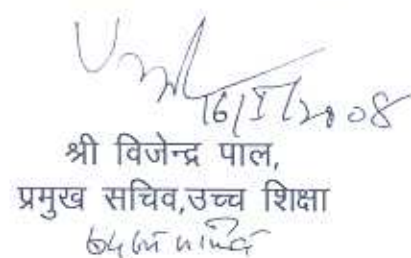 16/I/2008
श्री विजेन्द्र पाल,
प्रमुख सचिव,उच्च शिक्षा